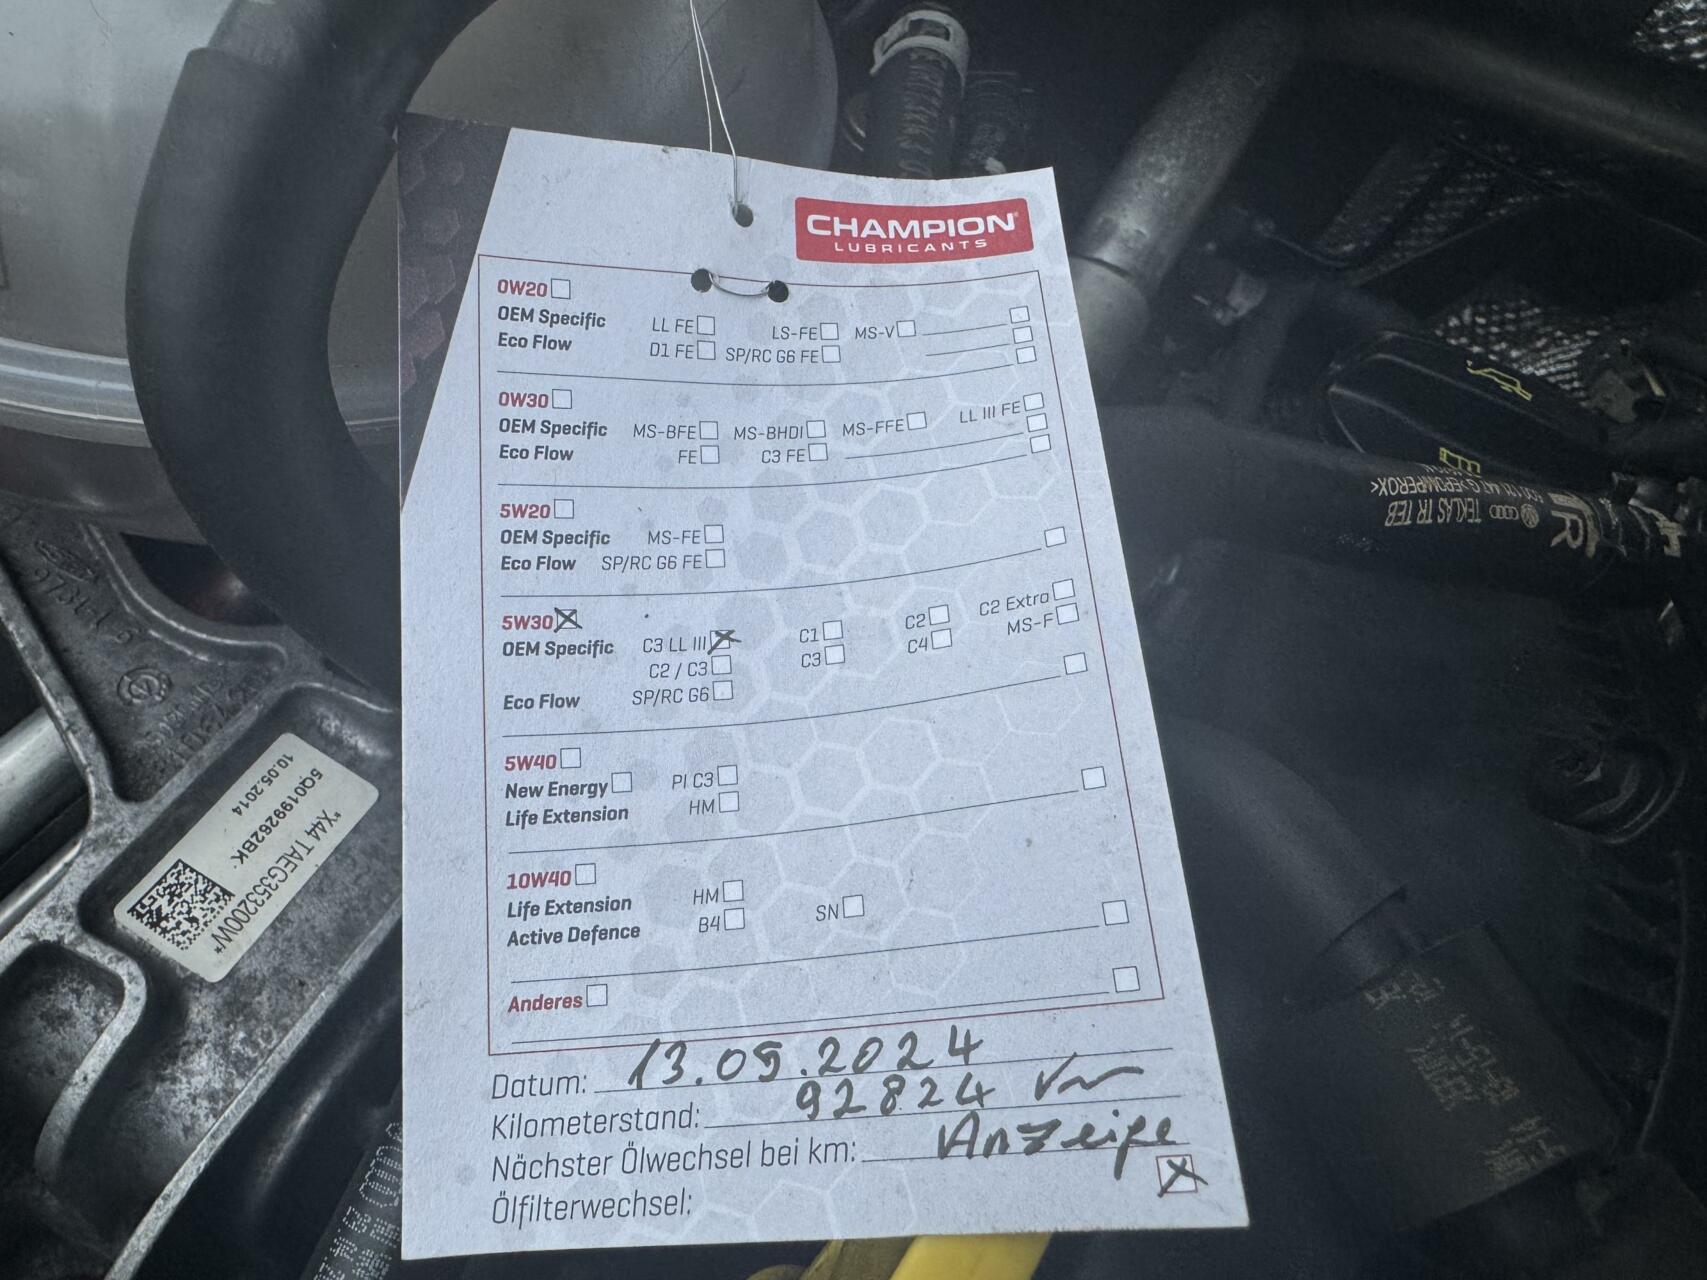 CHAMPION
LUBRICANTS
0W20
OEM Specific LL FE LS-FE MS-V
Eco Flow D1 FE SP/RC G6 FE
0W30
OEM Specific MS-BFE MS-BHDI MS-FFE LL III FE
Eco Flow FE C3 FE
5W20
OEM Specific MS-FE
Eco Flow SP/RC G6 FE
5W30
OEM Specific C3 LL III C1 C2 C2 Extra
C2 / C3 C3 C4 MS-F
Eco Flow SP/RC G6
5W40
New Energy PI C3
Life Extension HM
10W40
Life Extension HM
Active Defence B4 SN
Anderes
Datum: 13.09.2024
Kilometerstand: 92824 km
Nächster Ölwechsel bei km: Anzeige
Ölfilterwechsel:
*X44 TAEG353200W*
5Q0199262BK
10.05.2014
TEKLAS TR TEB